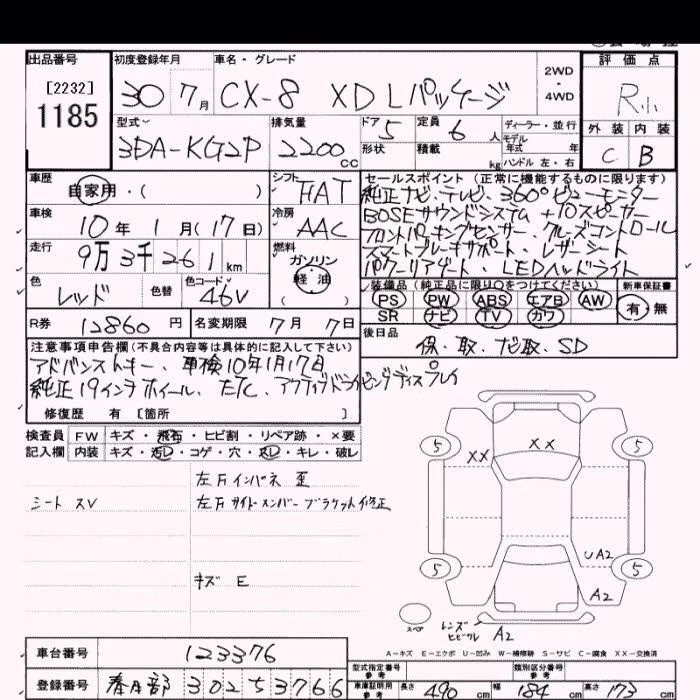 出品番号 初度登録年月 車名・グレード 2WD・4WD 評価点
[2232]
1185 30 7月 CX-8 XD Lパッケージ R小
型式 排気量 ドア 5 定員 6人 ディーラー・並行 外装 内装
3DA-KG2P 2200cc 形状 積載 kg モデル年式 年 ハンドル 左・右 C B
車歴 自家用・( ) シフト FAT セールスポイント (正常に機能するものに限ります)
純正ナビ、テレビ、360°ビューモニター
車検 10年 1月(17日) 冷房 AAC BOSEサウンドシステム+10スピーカー
フロントパーキングセンサー、クルーズコントロール
走行 9万3千261km 燃料 ガソリン 軽油 ( ) スマートブレーキサポート、レザーシート
パワーリアゲート、LEDヘッドライト
色 レッド 色替 色コード 46V 装備品 (純正品に限り○をつけてください) 新車保証書
PS PW ABS エアB AW 有・無
SR ナビ TV カワ
R券 12860円 名変期限 7月 7日 後日品
保、取、ナビ取、SD
注意事項申告欄 (不具合内容等は具体的に記入して下さい)
アドバンストキー、車検10年1月17日
純正19インチホイール、ETC、アクティブドライビングディスプレイ
修復歴 有 [箇所 ]
検査員 FW キズ・飛石・ヒビ割・リペア跡・×要
記入欄 内装 キズ・汚レ・コゲ・穴・スレ・キレ・破レ
左Fインパネ 歪
シート スレ 左Fサイドメンバー ブラケット修正
キズ E
5 XX XX 5
5 UA2 5
A2
スペア レンズ ヒビワレ A2
A-キズ E-エクボ U-凹み W-補修跡 S-サビ C-腐食 XX-交換済
車台番号 123376
型式指定番号 参考 類別区分番号 参考
登録番号 春日部 302 5 3766 車庫証明用 参考 長さ 490cm 幅 184cm 高さ 173cm